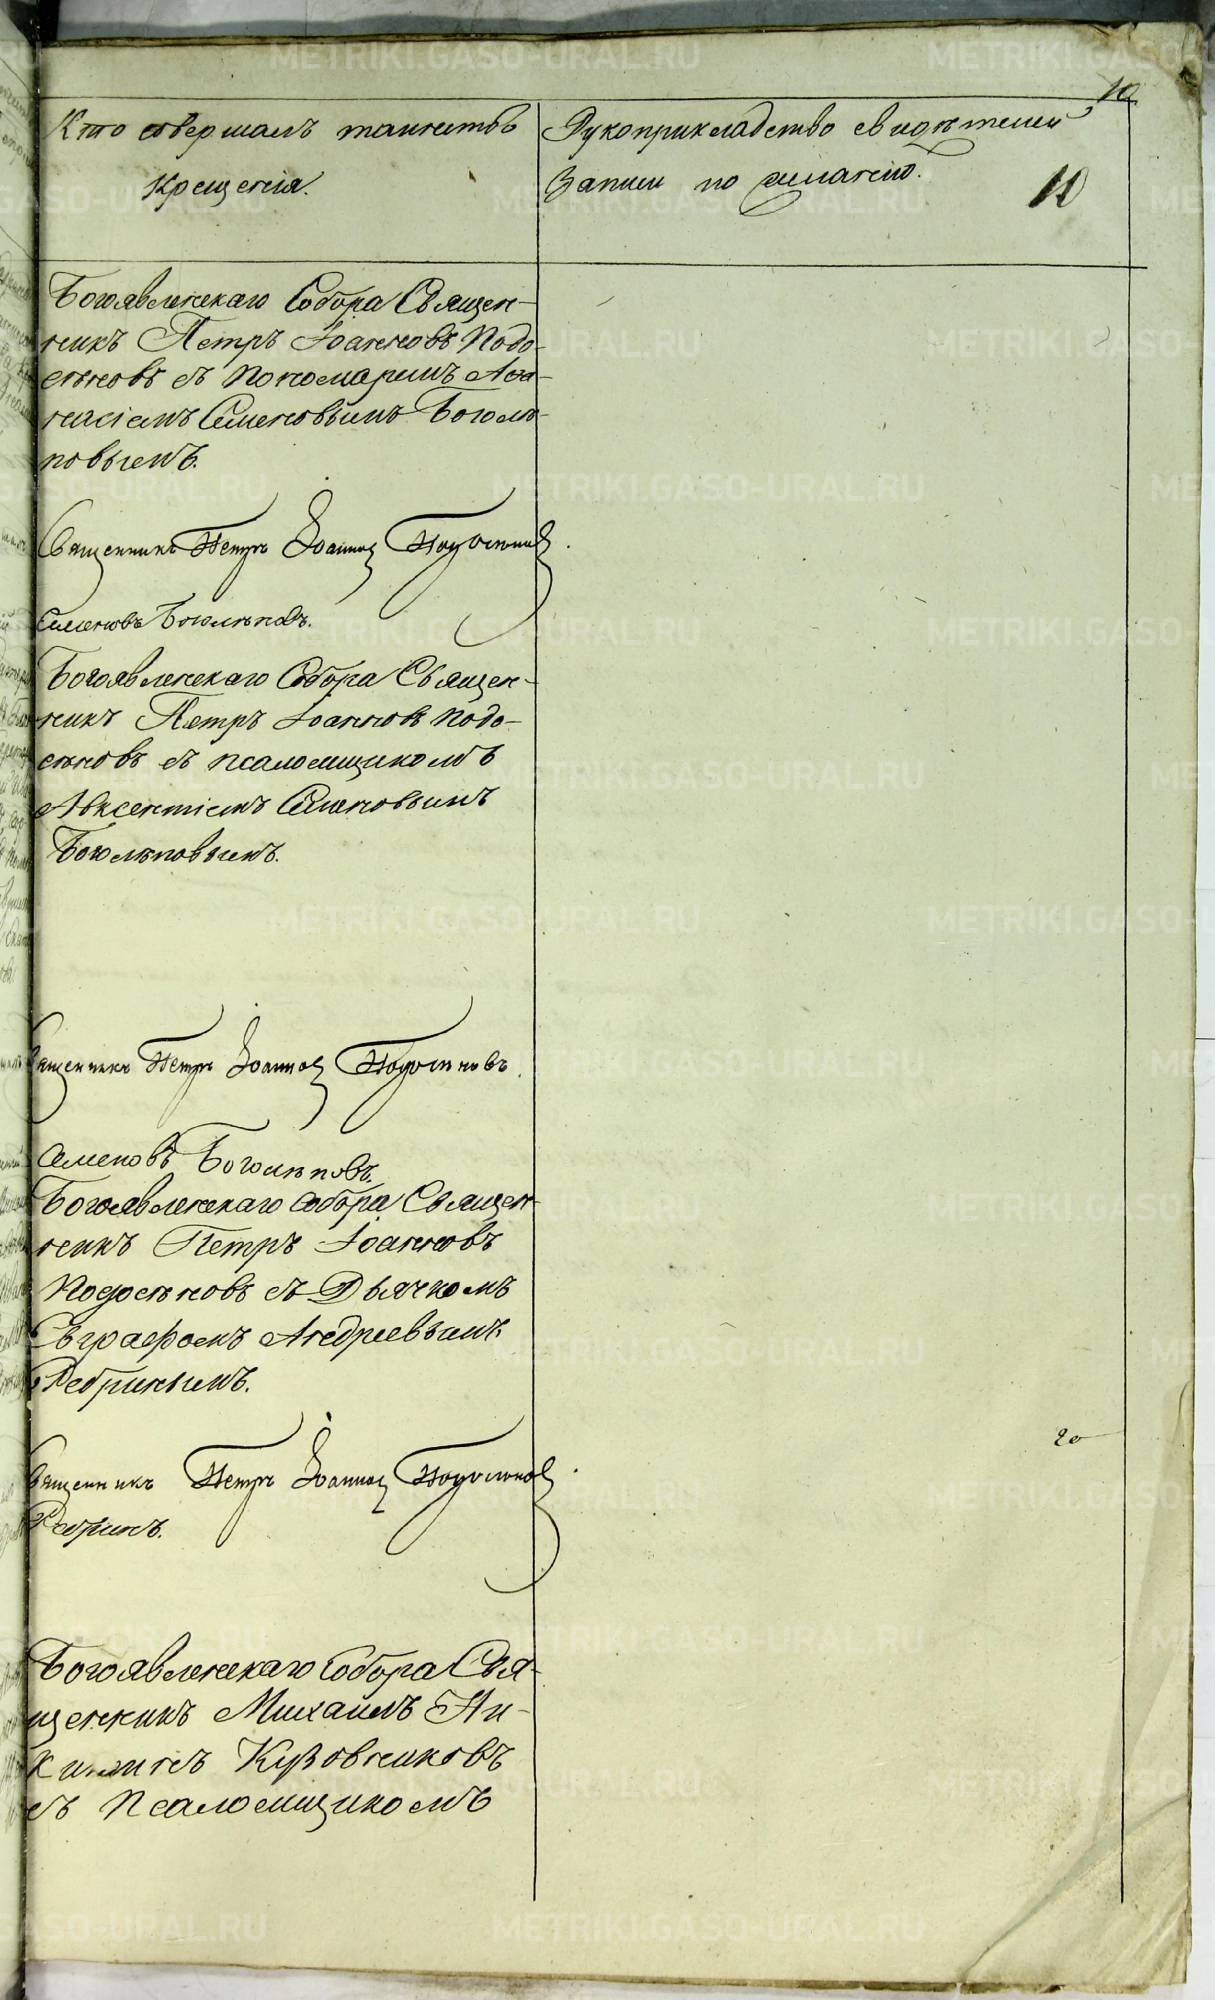 10
Кто совершалъ таинство
Крещенія.
Рукоприкладство свидѣтелей
Записи по желанію.
10
Богоявленскаго Собора Священ-
никъ Петръ Іоанновъ Подо-
сеновъ съ Пономаремъ Афа-
насіемъ Семеновымъ Боголѣ-
повымъ.
Священникъ Петръ Іоанновъ Подосеновъ.
Семеновъ Боголѣповъ.
Богоявленскаго Собора Священ-
никъ Петръ Іоанновъ Подо-
сеновъ съ псаломщикомъ
Авксентіемъ Семеновымъ
Боголѣповымъ.
Священникъ Петръ Іоанновъ Подосеновъ.
Семеновъ Боголѣповъ.
Богоявленскаго Собора Священ-
никъ Петръ Іоанновъ
Подосеновъ съ Дьячкомъ
Евграфомъ Андреевымъ
Ребринымъ.
20
Священникъ Петръ Іоанновъ Подосеновъ.
Ребринъ.
Богоявленскаго Собора Свя-
щенникъ Михаилъ Ни-
китинъ Кузовниковъ
съ Псаломщикомъ
METRIKI.GASO-URAL.RU